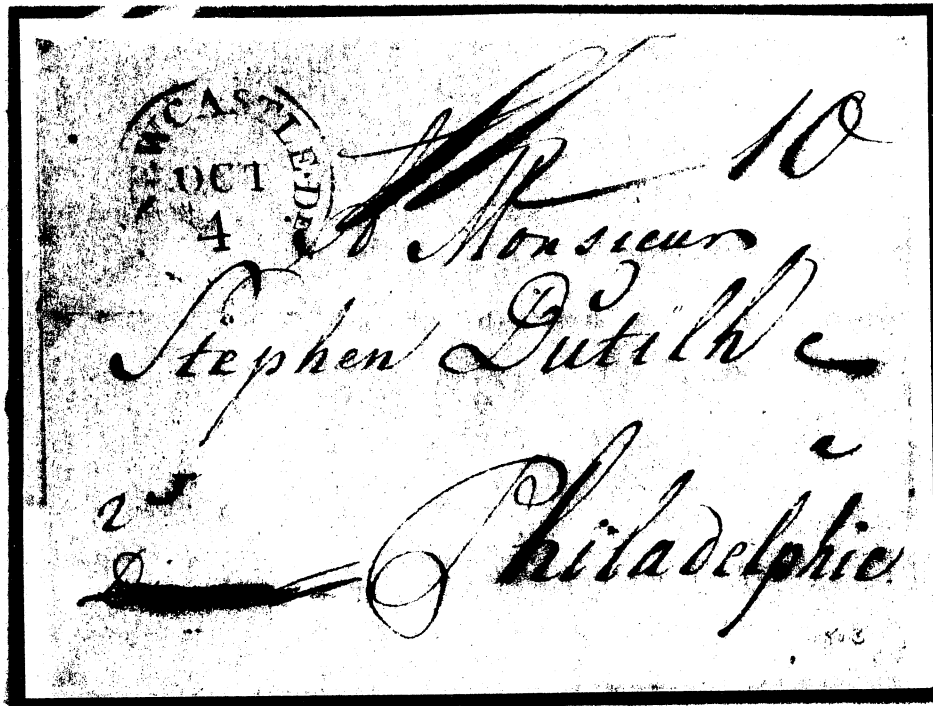 NEWCASTLE·DE
OCT
4
10
A Monsieur
Stephen Dutilh
a
Philadelphie